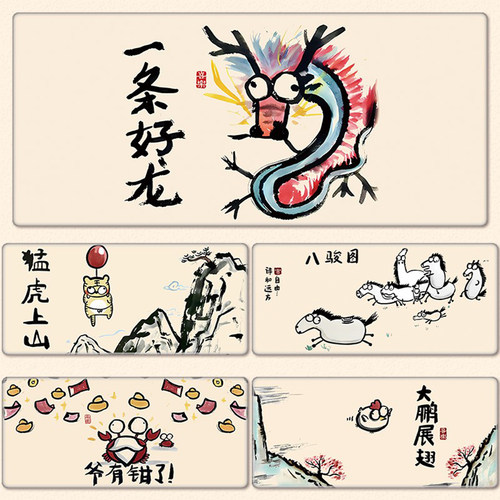 一条好龙
猛虎上山
八骏图
自由
诗和远方
爷有钳了!
大鹏展翅